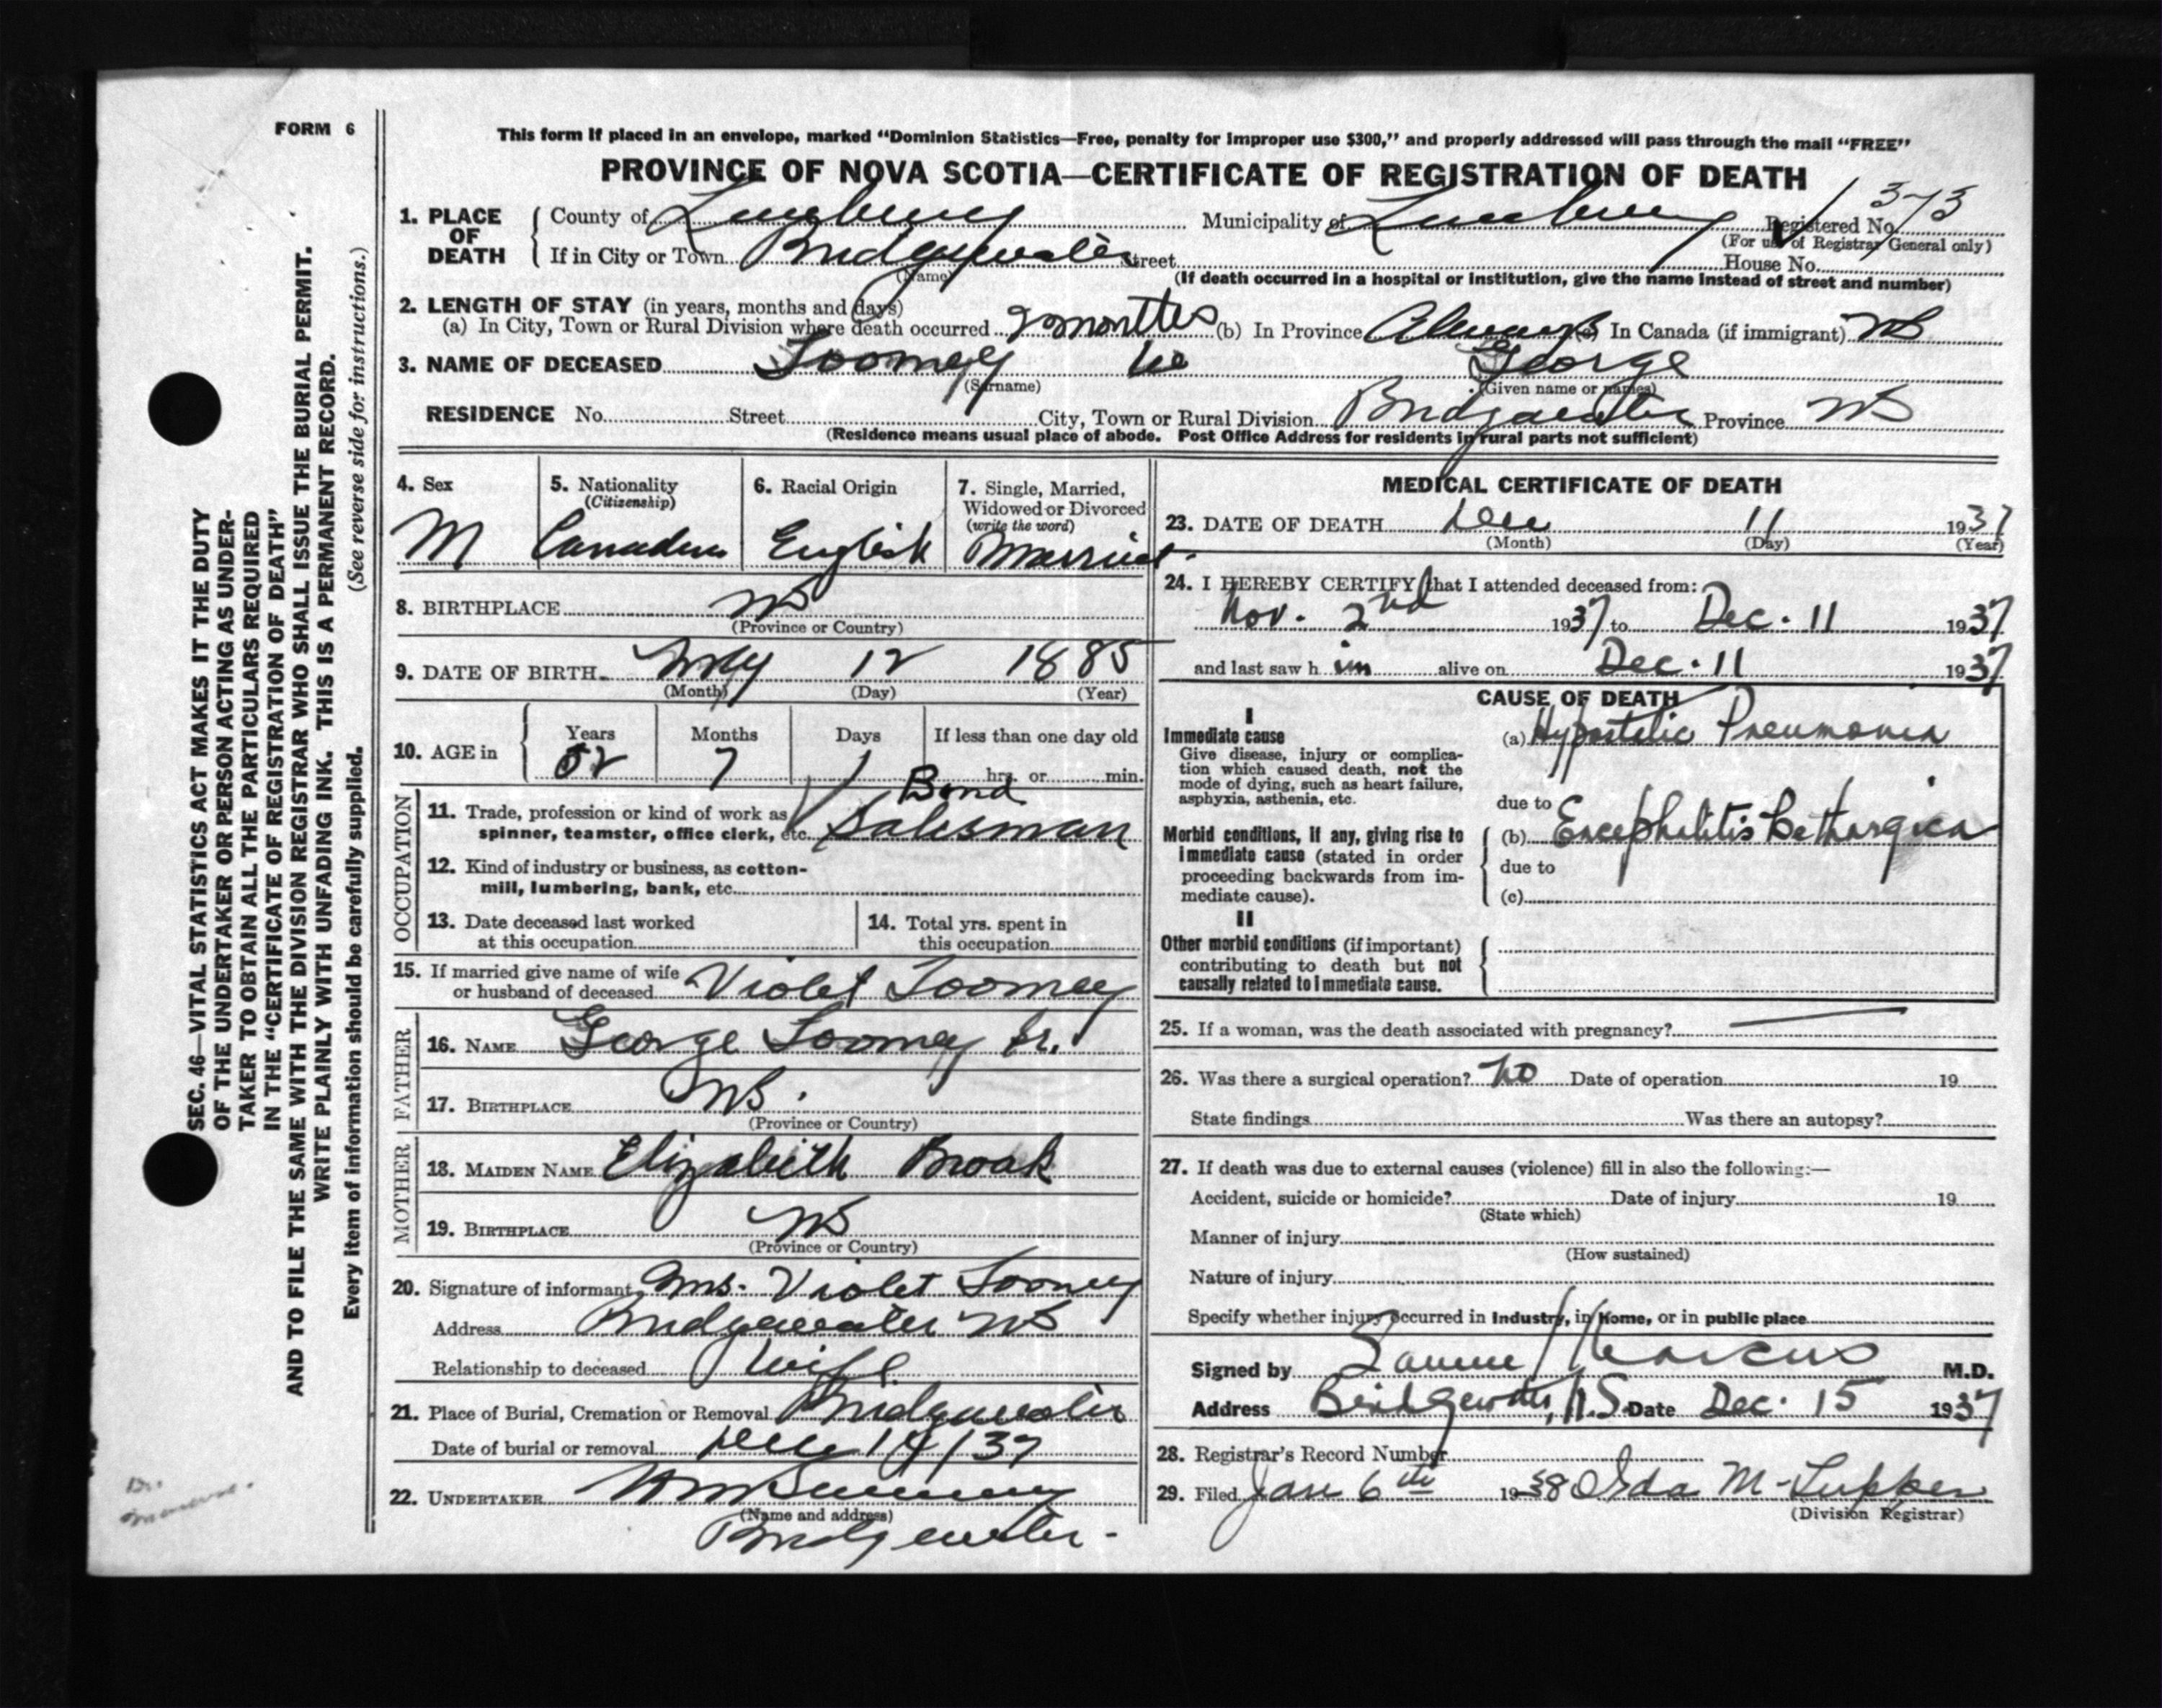 FORM 6
This form if placed in an envelope, marked “Dominion Statistics—Free, penalty for improper use $300,” and properly addressed will pass through the mail “FREE”
PROVINCE OF NOVA SCOTIA—CERTIFICATE OF REGISTRATION OF DEATH
1. PLACE OF DEATH
County of Lunenburg Municipality of Lunenburg Registered No. 373
(For use of Registrar General only)
If in City or Town Bridgewater Street House No.
(Name)
(If death occurred in a hospital or institution, give the name instead of street and number)
2. LENGTH OF STAY (in years, months and days)
(a) In City, Town or Rural Division where death occurred 2 months (b) In Province Always (c) In Canada (if immigrant) NS
3. NAME OF DECEASED Toomey George
(Surname) (Given name or names)
RESIDENCE No. Street City, Town or Rural Division Bridgewater Province NS
(Residence means usual place of abode. Post Office Address for residents in rural parts not sufficient)
4. Sex
M
5. Nationality
(Citizenship)
Canadian
6. Racial Origin
English
7. Single, Married,
Widowed or Divorced
(write the word)
Married
8. BIRTHPLACE NS
(Province or Country)
9. DATE OF BIRTH May 12 1885
(Month) (Day) (Year)
10. AGE in
Years Months Days If less than one day old
52 7 1 hrs. or min.
OCCUPATION
11. Trade, profession or kind of work as
spinner, teamster, office clerk, etc. Bond
Salesman
12. Kind of industry or business, as cotton-
mill, lumbering, bank, etc.
13. Date deceased last worked
at this occupation
14. Total yrs. spent in
this occupation
15. If married give name of wife
or husband of deceased Violet Toomey
FATHER
16. NAME George Toomey Sr.
17. BIRTHPLACE NS.
(Province or Country)
MOTHER
18. MAIDEN NAME Elizabeith Broak
19. BIRTHPLACE NS
(Province or Country)
20. Signature of informant Mrs. Violet Toomey
Address Bridgewater NS
Relationship to deceased Wife
21. Place of Burial, Cremation or Removal Bridgewater
Date of burial or removal Dec 14/37
22. UNDERTAKER
(Name and address)
Bridgewater.
MEDICAL CERTIFICATE OF DEATH
23. DATE OF DEATH Dec 11 1937
(Month) (Day) (Year)
24. I HEREBY CERTIFY that I attended deceased from:
Nov. 2nd 1937 to Dec. 11 1937
and last saw h im alive on Dec. 11 1937
CAUSE OF DEATH
I
Immediate cause
Give disease, injury or complica-
tion which caused death, not the
mode of dying, such as heart failure,
asphyxia, asthenia, etc.
(a) Hypostatic Pneumonia
due to
Morbid conditions, if any, giving rise to
immediate cause (stated in order
proceeding backwards from im-
mediate cause).
(b) Encephalitis Lethargica
due to
(c)
II
Other morbid conditions (if important)
contributing to death but not
causally related to immediate cause.
25. If a woman, was the death associated with pregnancy?
26. Was there a surgical operation? No Date of operation 19
State findings Was there an autopsy?
27. If death was due to external causes (violence) fill in also the following:—
Accident, suicide or homicide? Date of injury 19
(State which)
Manner of injury
(How sustained)
Nature of injury
Specify whether injury occurred in Industry, in Home, or in public place
Signed by Marcus M.D.
Address Bridgewater, N.S. Date Dec. 15 1937
28. Registrar's Record Number
29. Filed Jan 6th 1938 Ida M. Tupper
(Division Registrar)
SEC. 46—VITAL STATISTICS ACT MAKES IT THE DUTY
OF THE UNDERTAKER OR PERSON ACTING AS UNDER-
TAKER TO OBTAIN ALL THE PARTICULARS REQUIRED
IN THE “CERTIFICATE OF REGISTRATION OF DEATH”
AND TO FILE THE SAME WITH THE DIVISION REGISTRAR WHO SHALL ISSUE THE BURIAL PERMIT.
WRITE PLAINLY WITH UNFADING INK. THIS IS A PERMANENT RECORD.
Every item of information should be carefully supplied. (See reverse side for instructions.)